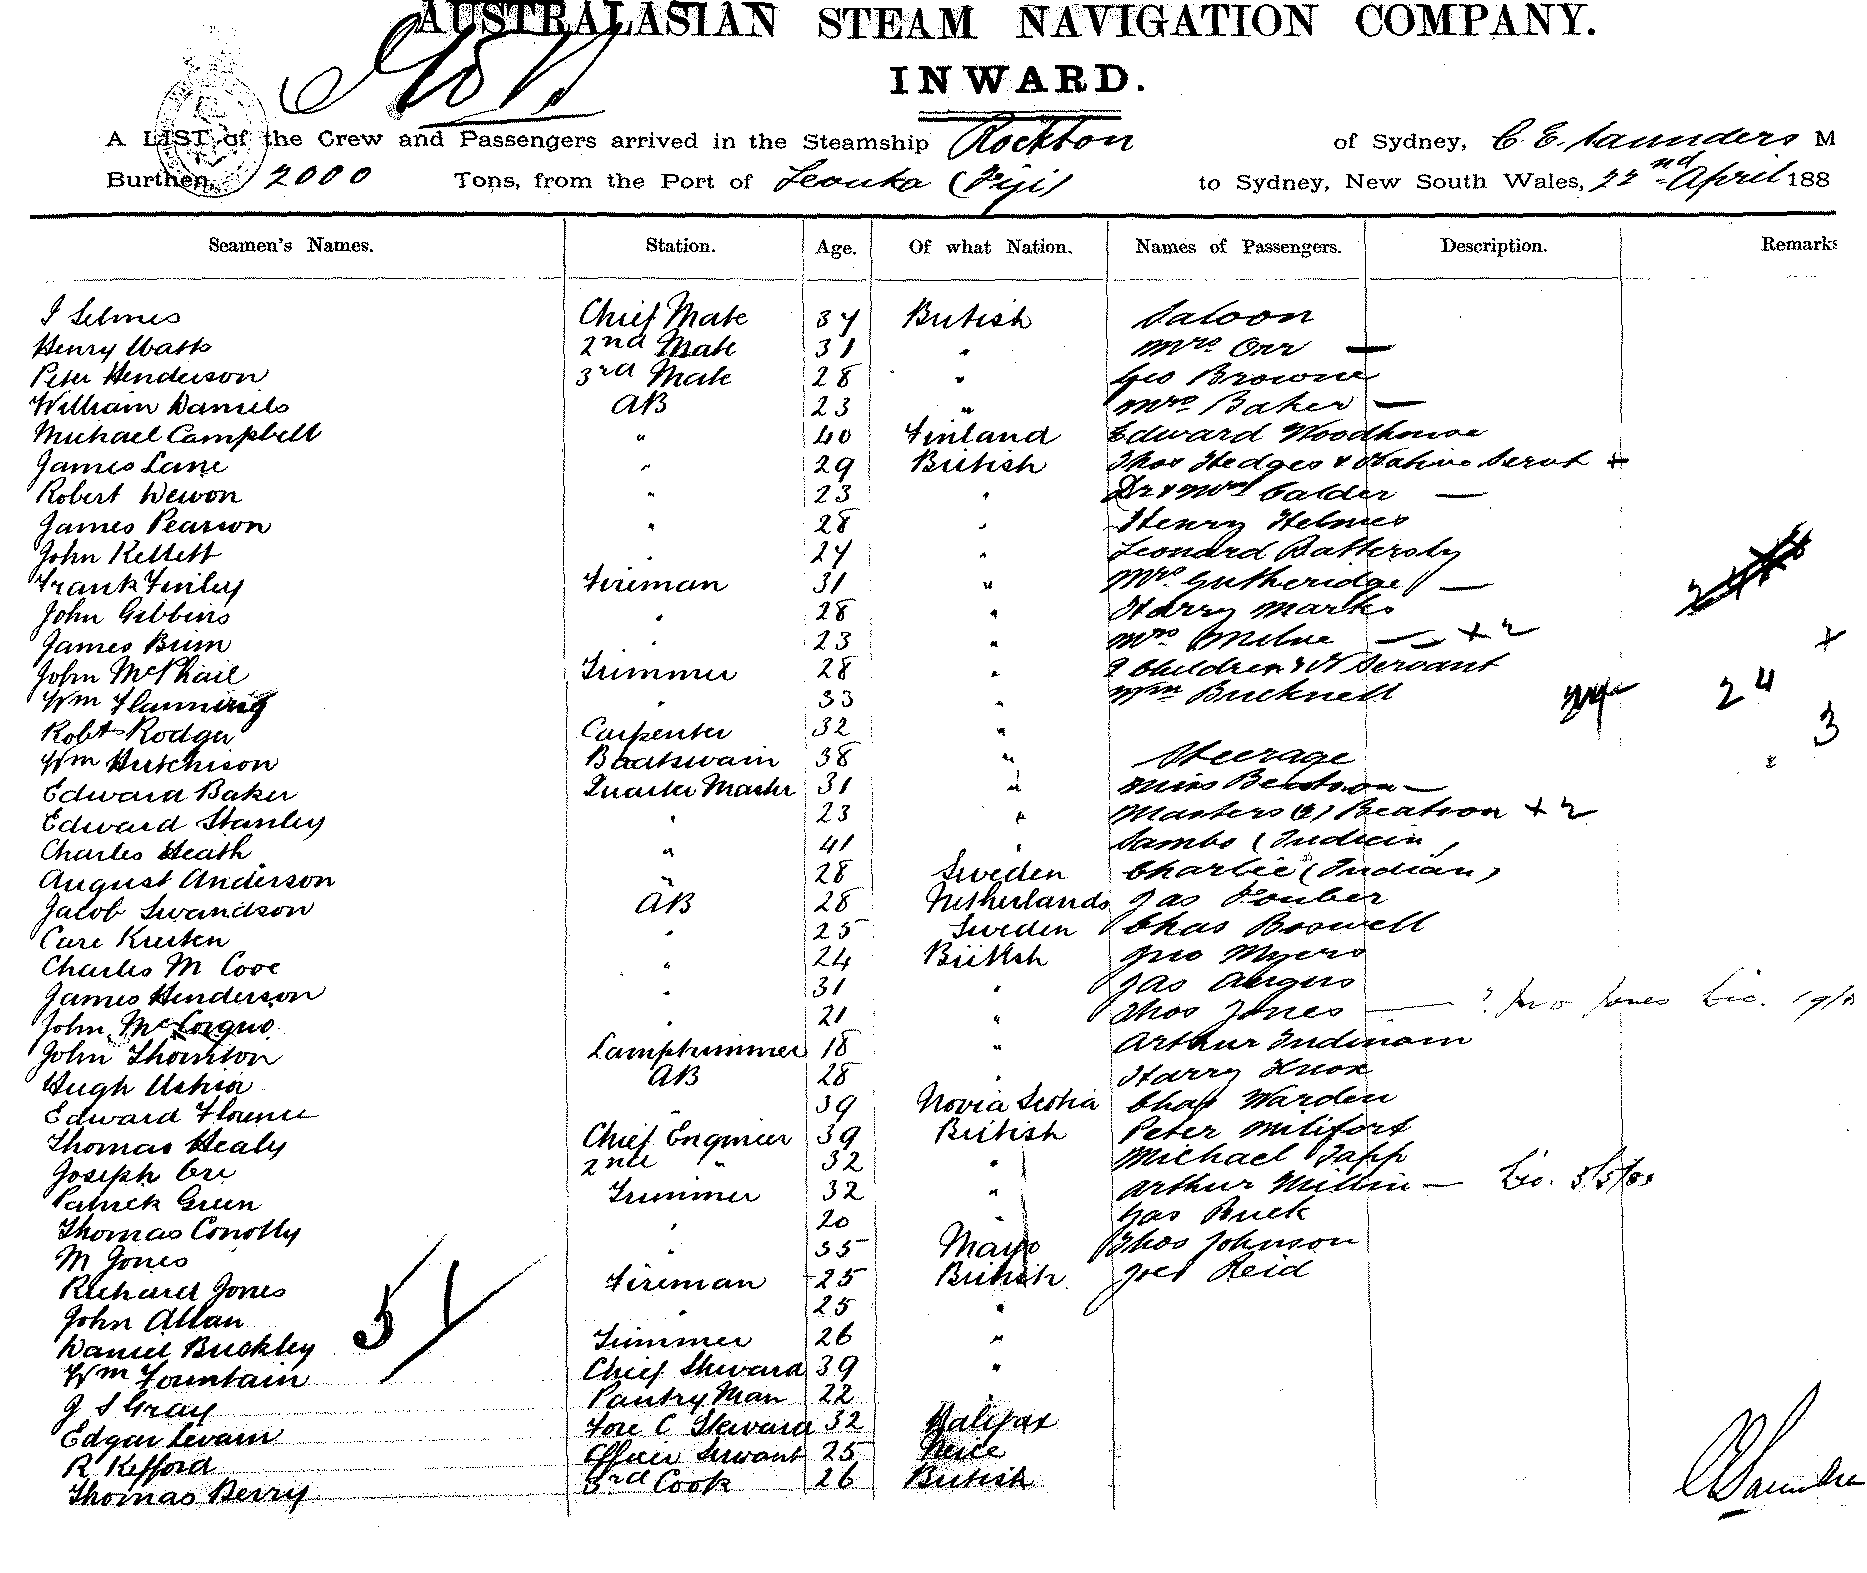 AUSTRALASIAN STEAM NAVIGATION COMPANY.
INWARD.
A LIST of the Crew and Passengers arrived in the Steamship Rockton of Sydney, C. E. Saunders M
Burthen, 2000 Tons, from the Port of Levuka (Fiji) to Sydney, New South Wales, 22nd April 188
Seamen's Names. Station. Age. Of what Nation. Names of Passengers. Description. Remarks
J Selmes Chief Mate 37 British Saloon
Henry Watts 2nd Mate 31 " Mrs Orr —
Peter Henderson 3rd Mate 28 " Geo Browne
William Daniels AB 23 " Mrs Baker —
Michael Campbell " 40 Finland Edward Woodhouse
James Lane " 29 British Thos Hedges & Native Servt +
Robert Dewon " 23 " Dr & Mrs Calder —
James Pearson " 28 " Henry Helmes
John Kellett " 27 " Leonard Battersby
Frank Finley Fireman 31 " Mrs Gutheridge —
John Gibbins " 28 " Harry Marks
James Brim " 23 " Mrs Milne — + 2 +
John McPhail Trimmer 28 " 2 Children & N Servant
Wm Flanning " 33 " Wm Bucknell 24
Robt Rodger Carpenter 32 " 3
Wm Hutchison Boatswain 38 " Steerage
Edward Baker Quarter Master 31 " Miss Beatson —
Edward Stanley " 23 " Masters (2) Beatson + 2
Charles Heath " 41 " Sambo (Indian)
August Anderson " 28 Sweden Charlie (Indian)
Jacob Swandson AB 28 Netherlands Jas
Carl Kristen " 25 Sweden Chas Boswell
Charles M Cove " 24 British Jno Myers
James Henderson " 31 " Jas Angus
John " 21 " Thos Jones — ? Jno Jones Lic.
John Thornton Lamptrimmer 18 " Arthur
Hugh AB 28 " Harry Knox
Edward Florence " 39 Novia Scotia Chas Warden
Thomas Healy Chief Engineer 39 British Peter Milifort
Joseph Orr 2nd " 32 " Michael Tapp
Patrick Green Trimmer 32 " Arthur Millin — Lic.
Thomas Conolly " 20 " Jas Buck
M Jones " 35 Mayo Thos Johnson
Richard Jones Fireman 25 British Joes Reid
John Allan " 25 "
Daniel Buckley Trimmer 26 "
Wm Fountain Chief Steward 39 "
J S Gray Pantry Man 22
Edgar Levain Fore C Steward 32 Halifax
R Kefford Officer Servant 25
Thomas Berry 3rd Cook 26 British
C Saunders